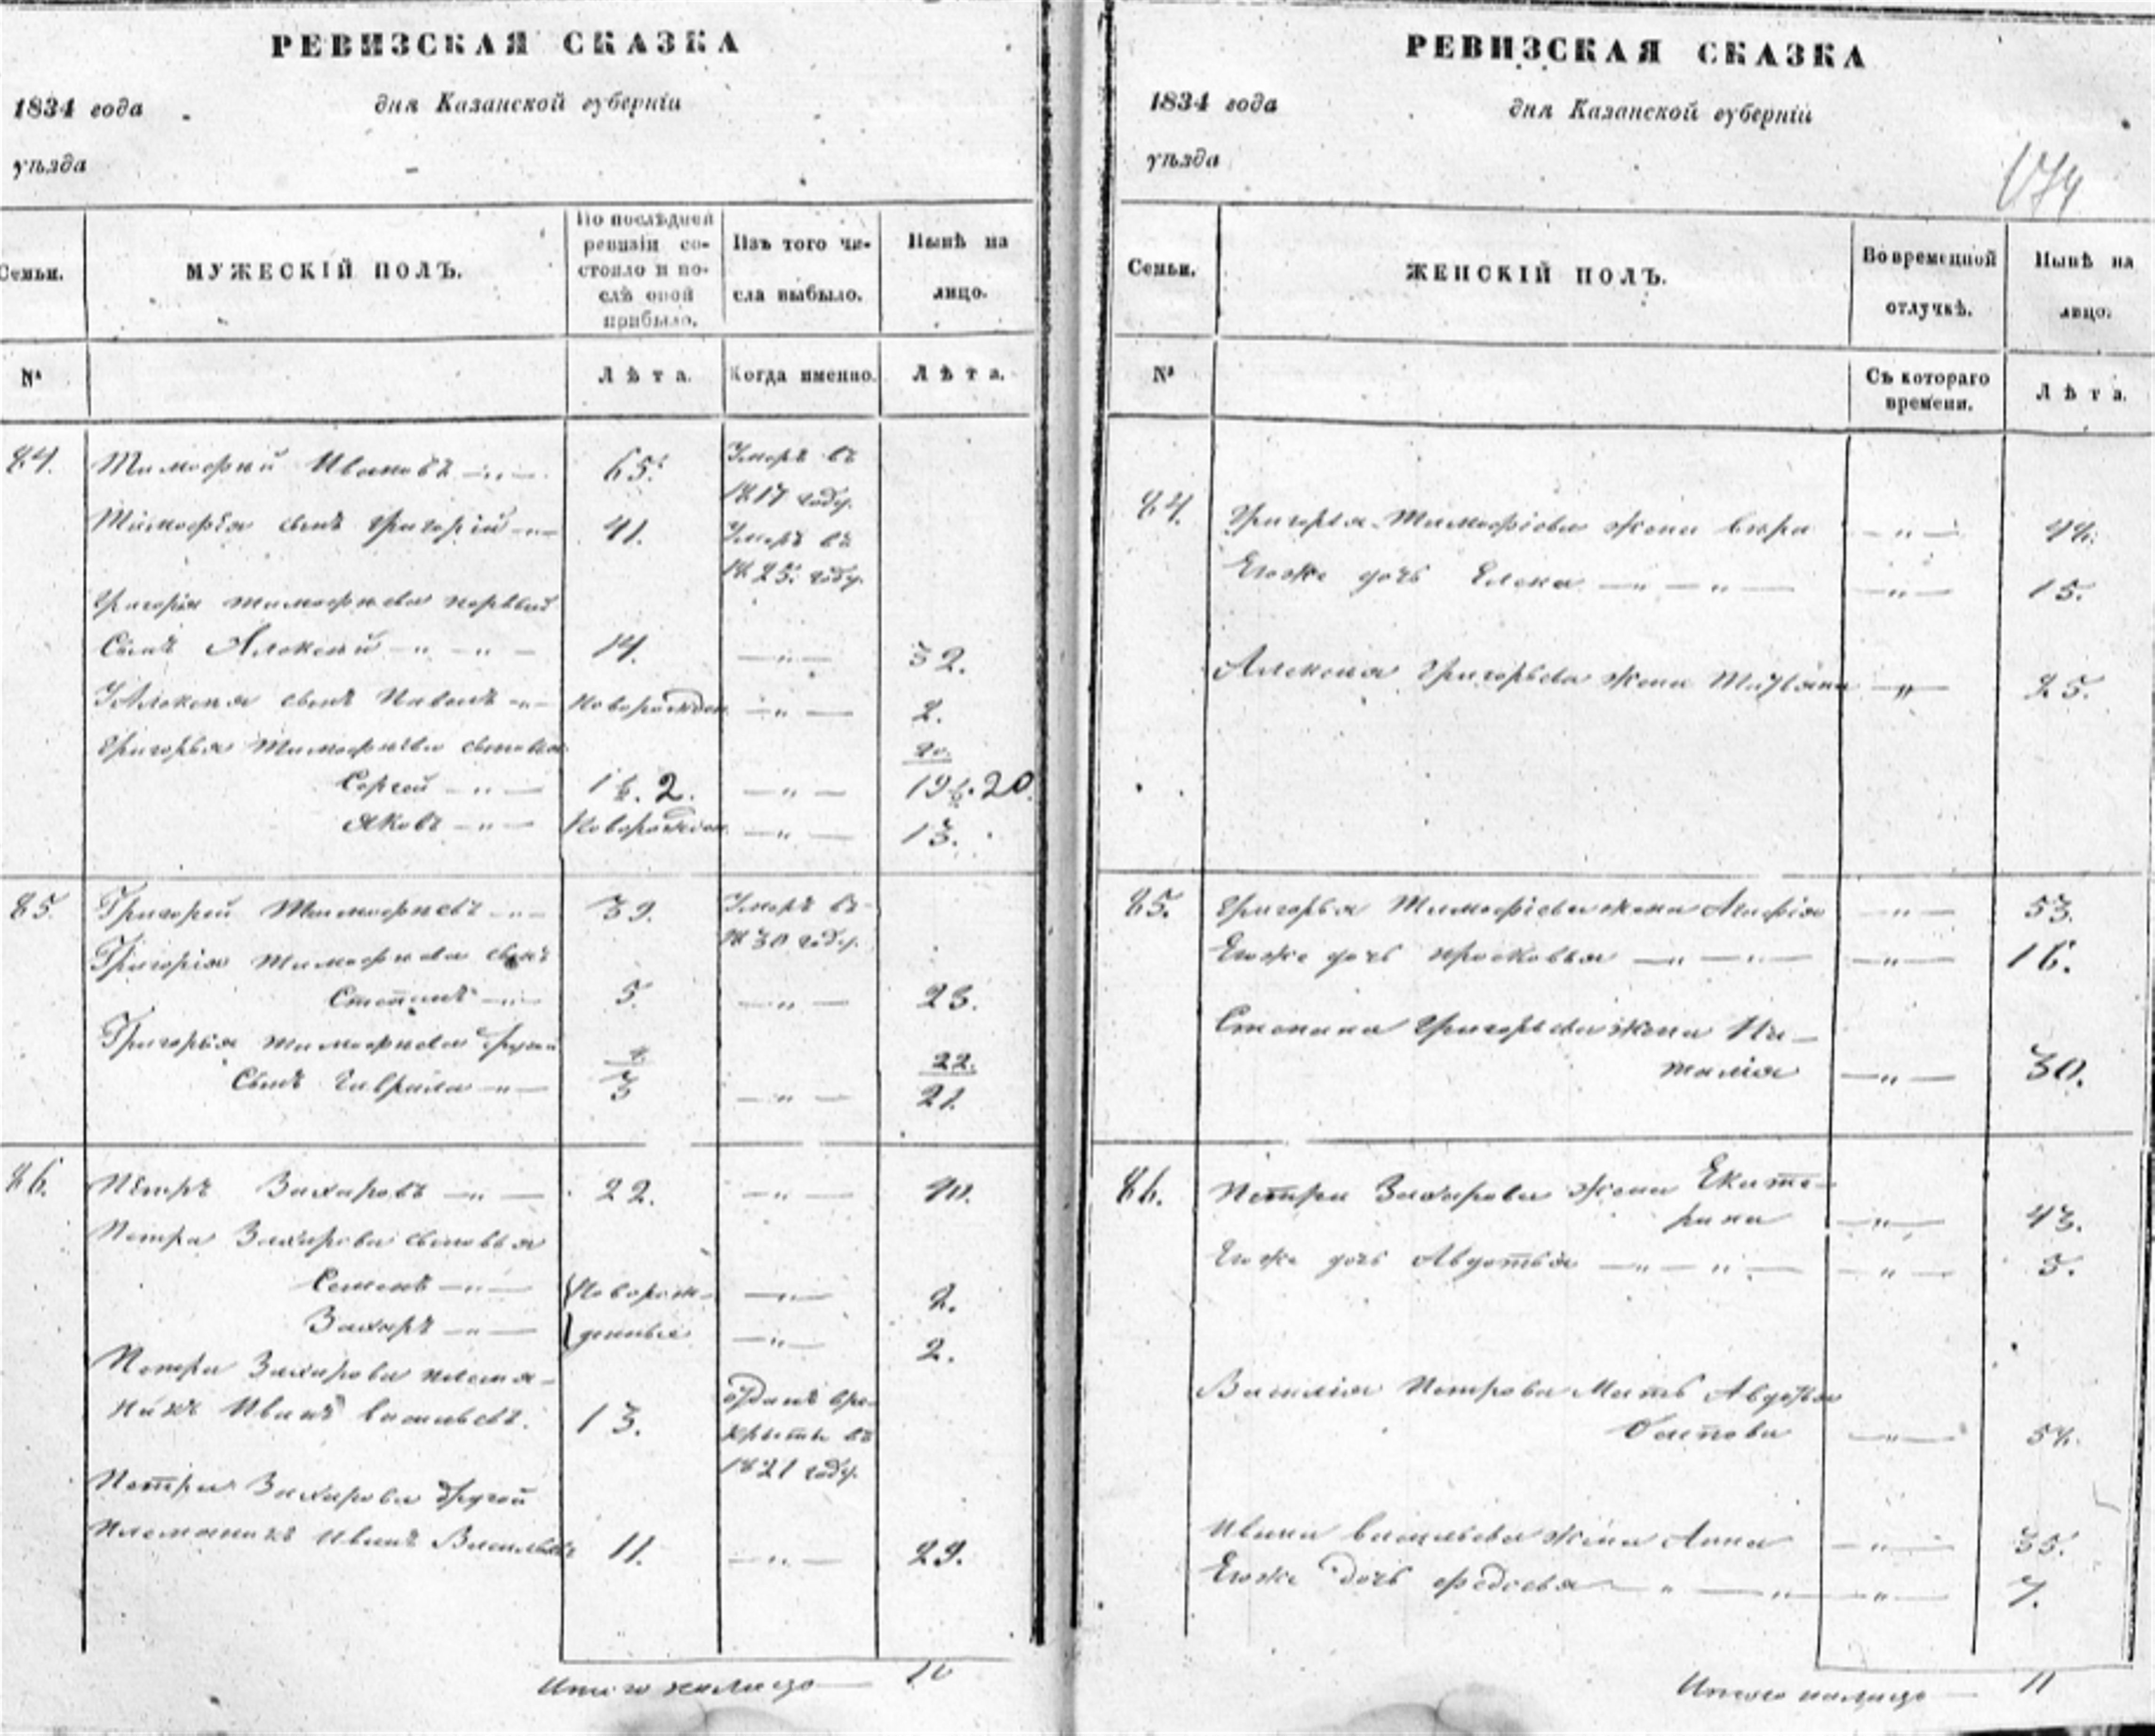 РЕВИЗСКАЯ СКАЗКА
1834 года дня Казанской губерніи
уѣзда
Семьи.
МУЖЕСКІЙ ПОЛЪ.
По послѣдней
ревизіи со-
стояло и по-
слѣ оной
прибыло.
Изъ того чи-
сла выбыло.
Нынѣ на
лицо.
№
Лѣта.
Когда именно.
Лѣта.
84. Тимофей Ивановъ 65. Умеръ въ
1817 году.
Тимофея сынъ Григорій 41. Умеръ въ
1825 году.
Григорія Тимофеева первый
сынъ Алексей 14. 32.
У Алексея сынъ Иванъ новорожден. 2.
Григорья Тимофеева сыновья
20.
Сергей 1½. 2. 19½. 20.
Яковъ новорожден. 13.
85. Григорей Тимофеевъ 39. Умеръ въ
1830 году.
Григорія Тимофеева сынъ
Степанъ 5. 23.
Григорья Тимофеева другой
4. 22.
сынъ Гаврила 3 21.
86. Петръ Захаровъ 22. 40.
Петра Захарова сыновья
Семенъ новорож- 2.
Захаръ денные 2.
Петра Захарова племя-
никъ Иванъ Васильевъ. 13. отданъ вре-
круты въ
1821 году.
Петра Захарова другой
племянникъ Иванъ Васильевъ 11. 29.
Итого налицо 10
РЕВИЗСКАЯ СКАЗКА
1834 года дня Казанской губерніи
уѣзда
174
Семьи.
ЖЕНСКІЙ ПОЛЪ.
Во временной
отлучкѣ.
Нынѣ на
лицо.
№
Съ котораго
времени.
Лѣта.
84. Григорья Тимофіева жена Вера 44.
Егоже дочь Елена 15.
Алексея Григорьева жена Татьяна 25.
85. Григорья Тимофіева жена Агафія 53.
Егоже дочь Прасковья 16.
Степана Григорьева жена На-
талія 30.
86. Петра Захарова жена Екате-
рина 43.
Егоже дочь Авдотья 5.
Василія Петрова Мать Авдотья
54.
Ивана Васильева жена Анна 35.
Егоже дочь Федосья 7.
Итого налицо 11